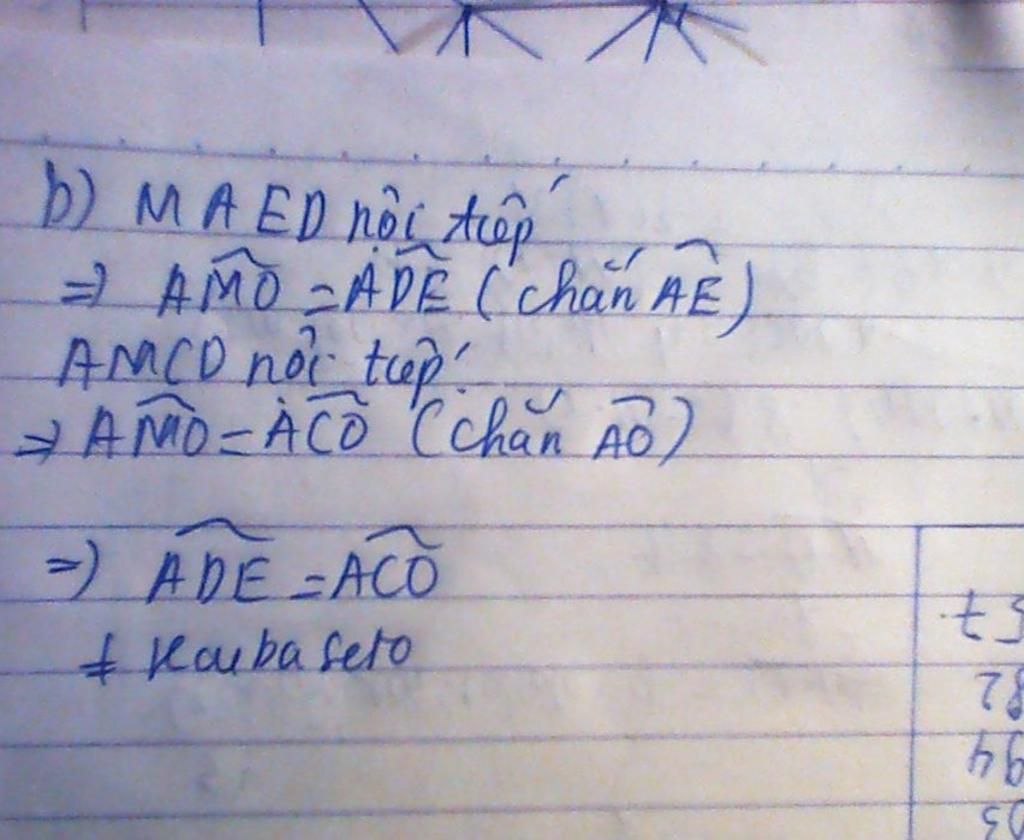 b) MAED nội tiếp
=) AMO = ADE (chắn AE)
AMCO nội tiếp
=> AMO = ACO (chắn AO)
=) ADE = ACO
# Koubasero
57
82
94